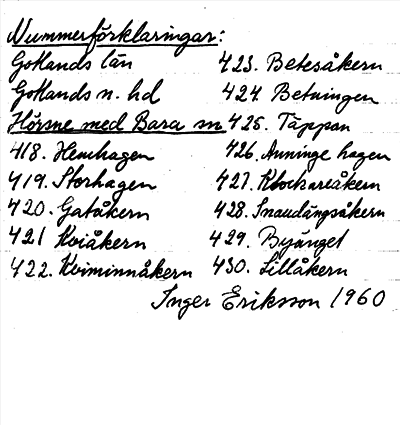 Nummerförklaringar:
Gotlands län
Gotlands n. hd
Hörsne med Bara sn
418. Hemhagen
419. Storhagen
420. Gatåkern
421 Kviåkern
422. Kviminnåkern
423. Betesåkern
424. Betningen
425. Täppan
426. Anninge hagen
427. Klockareåkern
428. Snaudängsåkern
429. Byänget
430. Lillåkern
Inger Eriksson 1960